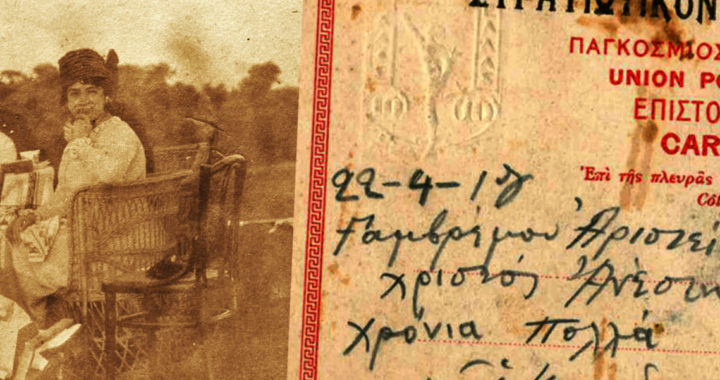 ΣΤΡΑΤΙΩΤΙΚΟΝ
ΠΑΓΚΟΣΜΙΟΣ
UNION PO
ΕΠΙΣΤΟ
CAR
Ἐπὶ τῆς πλευρᾶς
Côt
22-4-18
Γαμβρέ μου Ἀριστεί
Χριστός Ἀνέστη
Χρόνια Πολλά